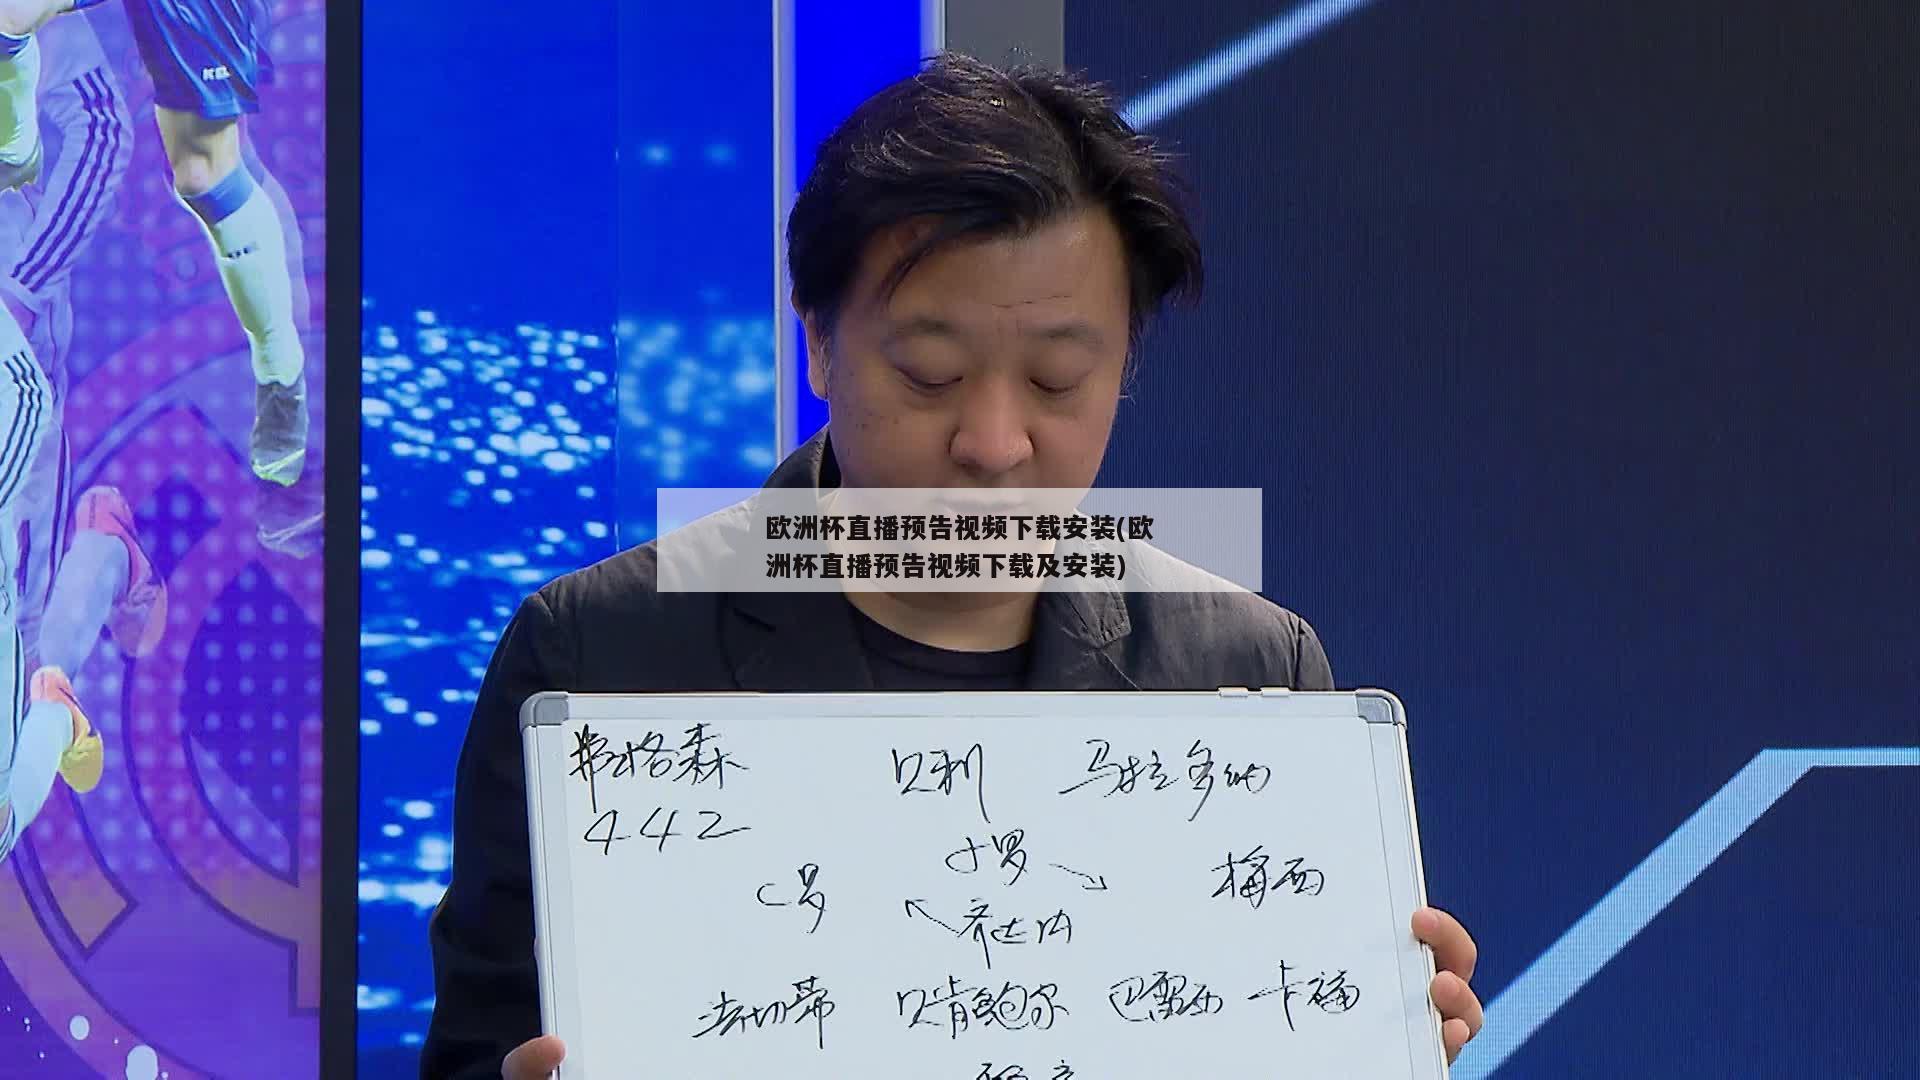 欧洲杯直播预告视频下载安装(欧
洲杯直播预告视频下载及安装)
弗格森 贝利 马拉多纳
442
小罗
C罗 梅西
齐达内
法切蒂 贝肯鲍尔 巴雷西 卡福